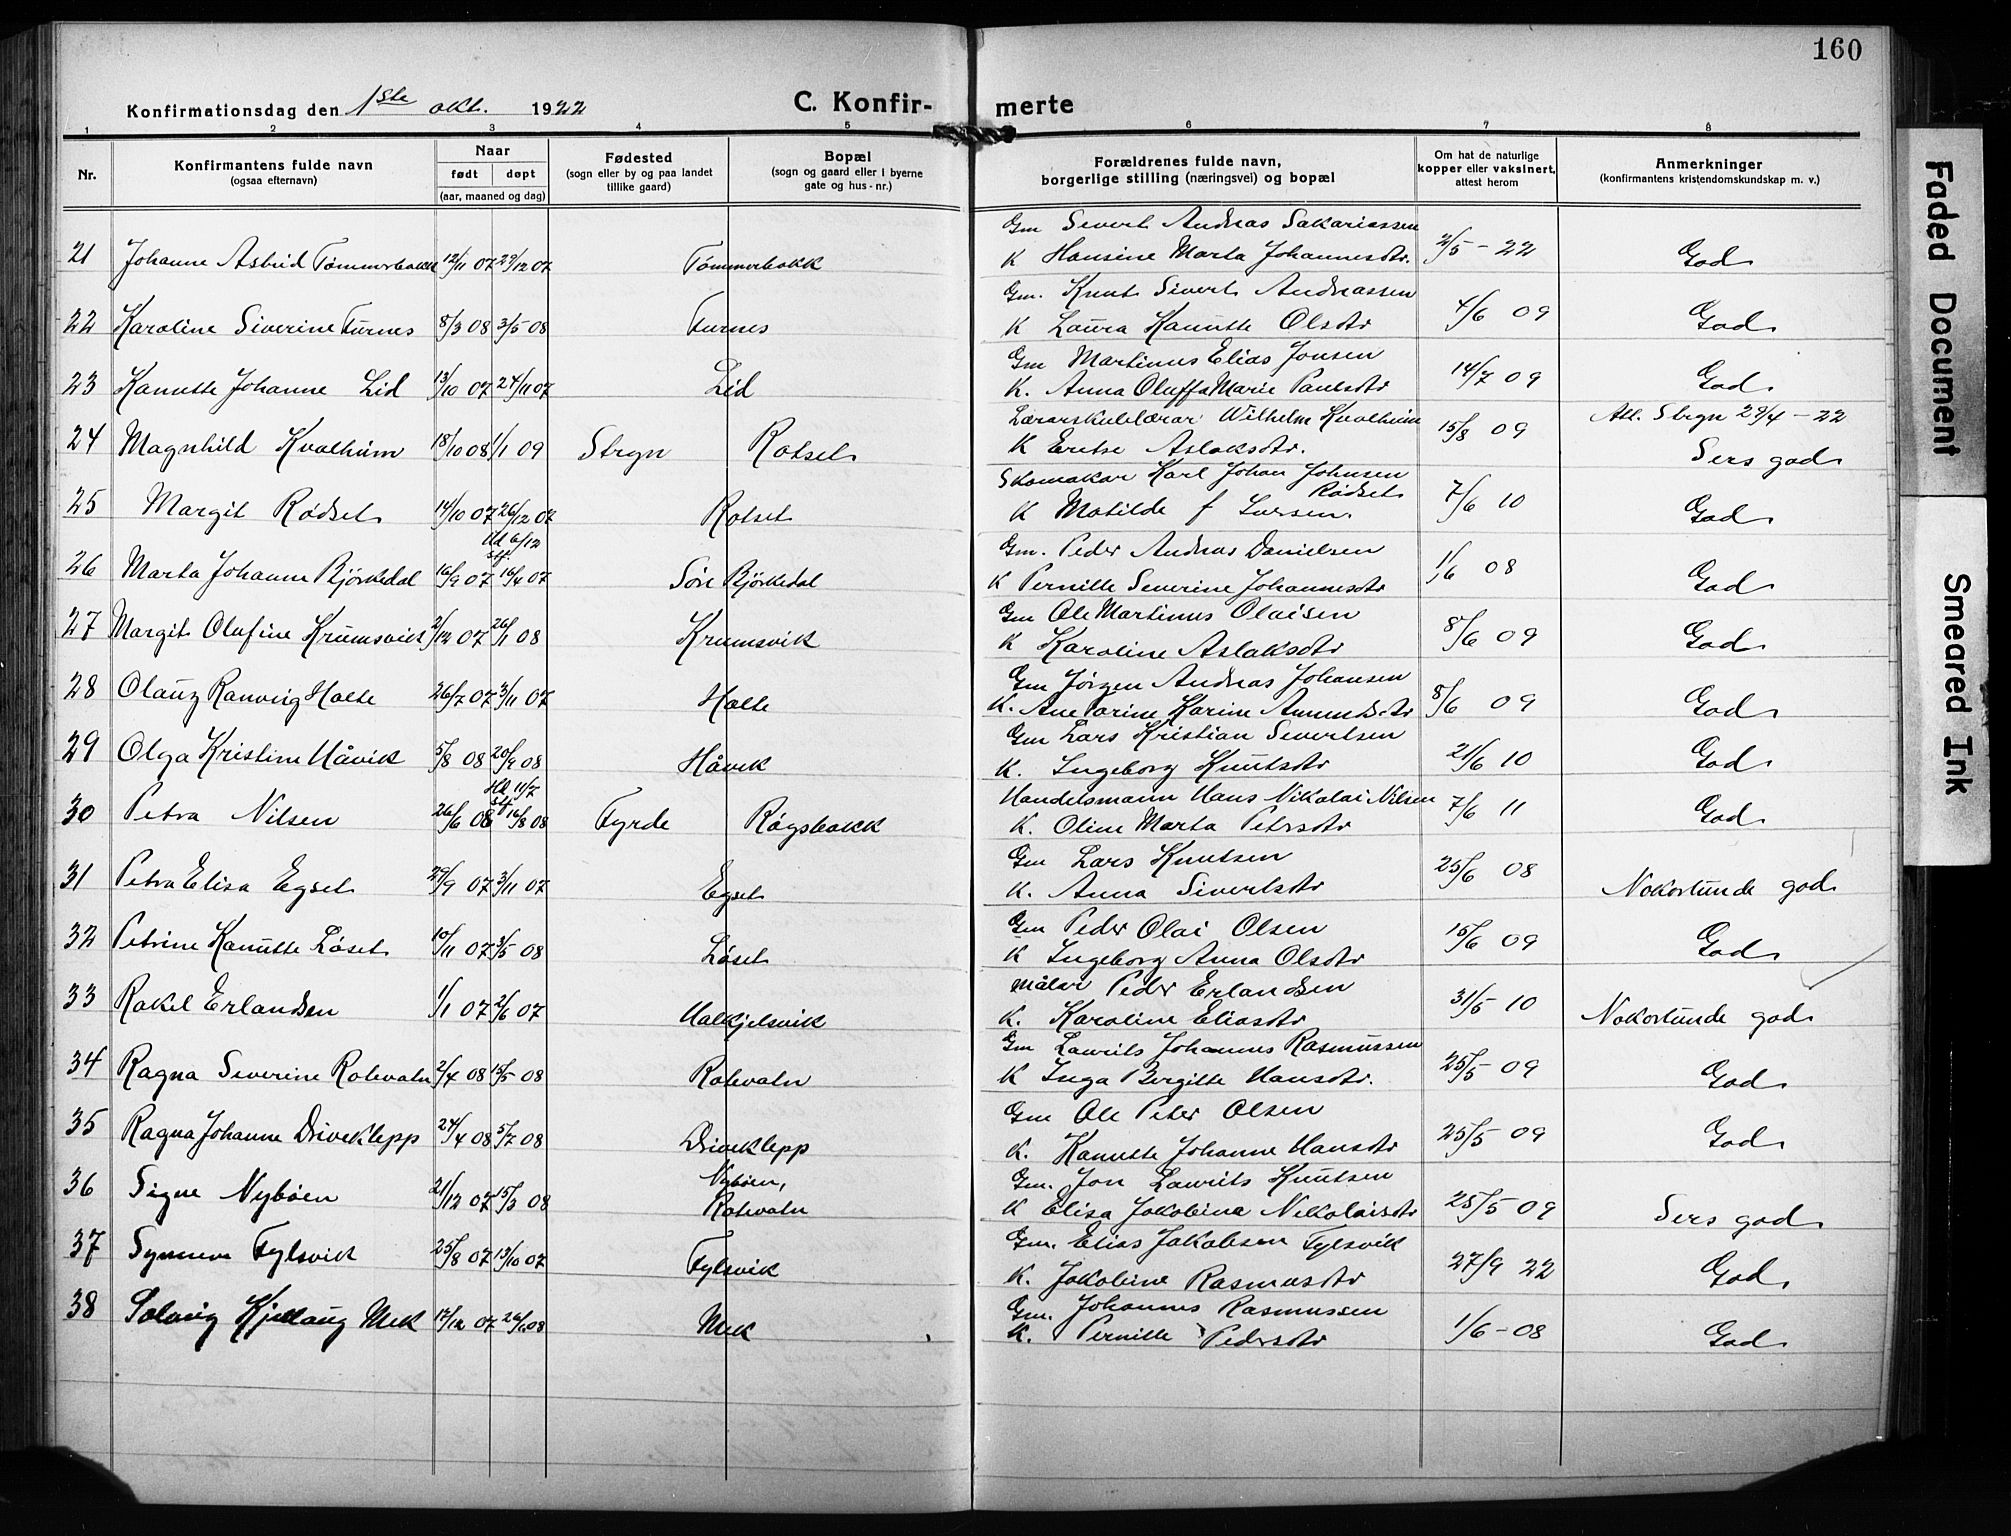 160
Konfirmationsdag den 1ste okt. 1922 C. Konfir- merte
1 2 3 4 5 6 7 8
Nr. Konfirmantens fulde navn (ogsaa efternavn) Naar født døpt (aar, maaned og dag) Fødested (sogn eller by og paa landet tillike gaard) Bopæl (sogn og gaard eller i byerne gate og hus-nr.) Forældrenes fulde navn, borgerlige stilling (næringsvei) og bopæl Om hat de naturlige kopper eller vaksinert, attest herom Anmerkninger (konfirmantens kristendomskundskap m. v.)
Gm Sivert Andreas Sakariassen
21 Johanne Astrid Tømmerbakk 12/11 07 29/12 07 Tømmerbakk K Hansine Marta Johannesdtr. 2/5 - 22 God
Gm. Knut Sivert Andreassen
22 Karoline Siverine Furnes 8/3 08 3/5 08 Furnes K Laura Kanutte Olsdtr 4/6 09 God
Gm Martinus Elias Jonsen
23 Kanutte Johanne Lid 13/10 07 24/11 07 Lid K. Anna Oluffa Marie Paulsdtr 14/7 09 God
Lærarskulelærar Wilhelm Kvalheim Att. Stryn 29/4 - 22
24 Magnhild Kvalheim 18/10 08 1/1 09 Stryn Rotset K Eretse Aslaksdtr. 15/8 09 Sers god
Skomakar Karl Johan Johnsen Rødset
25 Margit Rødset 14/10 07 26/12 07 Rotset K Matilde f Larsen. 7/6 10 God
Hd 6/12
Stf. Gm. Peder Andreas Danielsen
26 Marta Johanne Bjørkedal 16/9 07 16/4 07 Søre Bjørkedal K Pernille Severine Johannesdtr 1/6 08 God
Gm Ole Martinus Olaisen
27 Margit Olufine Krumsvik 2/12 07 26/1 08 Krumsvik K Karoline Aslaksdtr 8/6 09 God
Gm Jørgen Andreas Johansen
28 Olaug Ranveig Halse 26/7 07 3/11 07 Halse K. Ane Karine Amundsdtr 8/6 09 God
Gm Lars Kristian Severtsen
29 Olga Kristine Håvik 5/8 08 20/9 08 Håvik K. Ingeborg Knutsdtr 21/6 10 God
Hd 11/7
Stf Handelsmann Hans Nikolai Nilsen
30 Petra Nilsen 26/6 08 16/8 08 Fyrde Røysbakk K. Oline Marta Petersdtr 7/6 11 God
Gm Lars Knutsen
31 Petra Elisa Egset 29/9 07 3/11 07 Egset K. Anna Sivertsdtr 25/6 08 Nokorlunde god
Gm Peder Olai Olsen
32 Petrine Kanutte Løset 10/11 07 3/5 08 Løset K Ingeborg Anna Olsdtr 15/6 09 God
Målar Peder Erlandsen
33 Rakel Erlandsen 1/1 07 2/6 07 Halkjelsvik K. Karoline Eliasdtr 31/5 10 Nokorlunde god
Gm Laurits Johannes Rasmussen
34 Ragna Severine Rotevatn 2/4 08 15/5 08 Rotevatn K Inga Bergitte Hansdtr. 25/5 09 God
Gm Ole Peter Olsen
35 Ragna Johanne Driveklepp 24/4 08 5/7 08 Driveklepp K. Kanutte Johanne Hansdtr 25/5 09 God
Nybøen, Gm. Jon Laurits Knutsen
36 Signe Nybøen 21/12 07 15/3 08 Rotevatn K Elisa Jakobina Nikolaisdtr 25/5 09 Sers god
Gm. Elias Jakobsen Fylsvik
37 Synneve Fylsvik 25/8 07 13/10 07 Fylsvik K. Jakobine Rasmusdtr 27/9 22 God
Gm. Johannes Rasmussen
38 Solveig Kjellaug Mek 17/12 07 26/1 08 Mek K. Pernille Pedersdtr 1/6 - 08 God
Faded Document
Smeared Ink